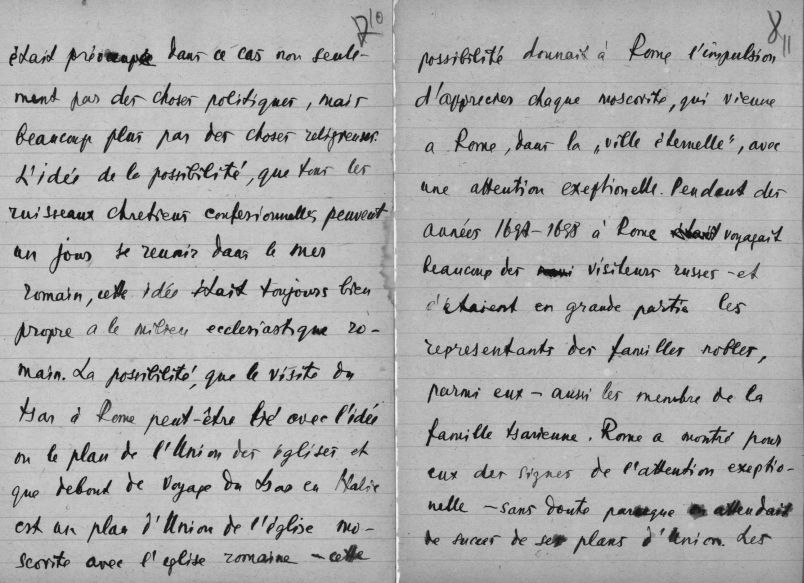 7 10
était préoccupée dans ce cas non seule-
ment par des choses politiques, mais
beaucoup plus par des choses religieuses.
L'idée de la possibilité, que tous les
ruisseaux chretiens confesionnelles peuvent
un jour se reunir dans le mer
romain, cette idée était toujours bien
propre a le milieu ecclesiastique ro-
main. La possibilité, que le visite du
tsar à Rome peut-être lié avec l'idée
ou le plan de l'Union des églises et
que debout de voyage du tsar en Italie
est un plan d'Union de l'église mo-
scovite avec l'eglise romaine – cette
8 11
possibilité donnait à Rome l'impulsion
d'apprecher chaque moscovite, qui vienne
a Rome, dans la „ville éternelle", avec
une attention exeptionelle. Pendant des
années 1697–1698 à Rome était voyagait
beaucoup des visiteurs russes – et
c'étaient en grande partie les
representants des familles nobles,
parmi eux – aussi les membre de la
famille tsarienne. Rome a montré pour
eux des signes de l'attention exeptio-
nelle – sans doute parceque en attendait
de succes de ses plans d'Union. Les